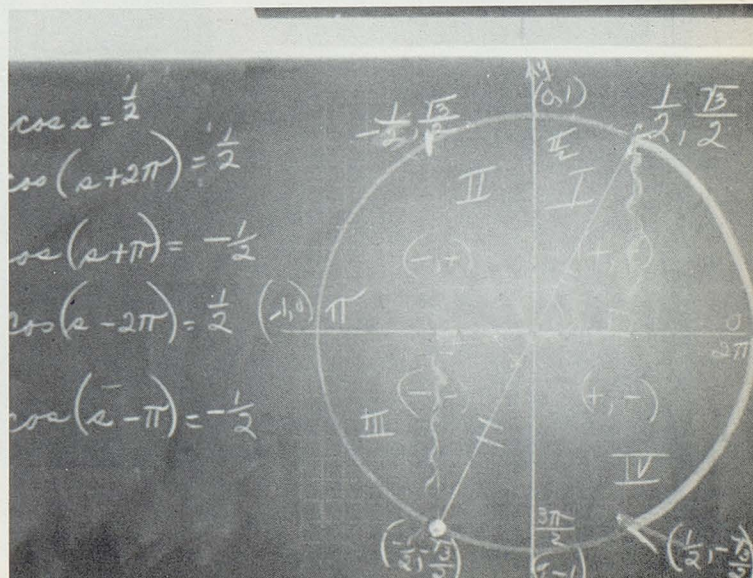 cos s = 1/2
cos(s+2π) = 1/2
cos(s+π) = -1/2
cos(s-2π) = 1/2
cos(s-π) = -1/2
y
(0,1)
-1/2, √3/2
1/2, √3/2
π/2
II
I
(-,+)
(+,+)
(-1,0)
π
0
2π
(-,-)
(+,-)
III
IV
3π/2
(-1/2, -√3/2)
(1/2, -√3/2)